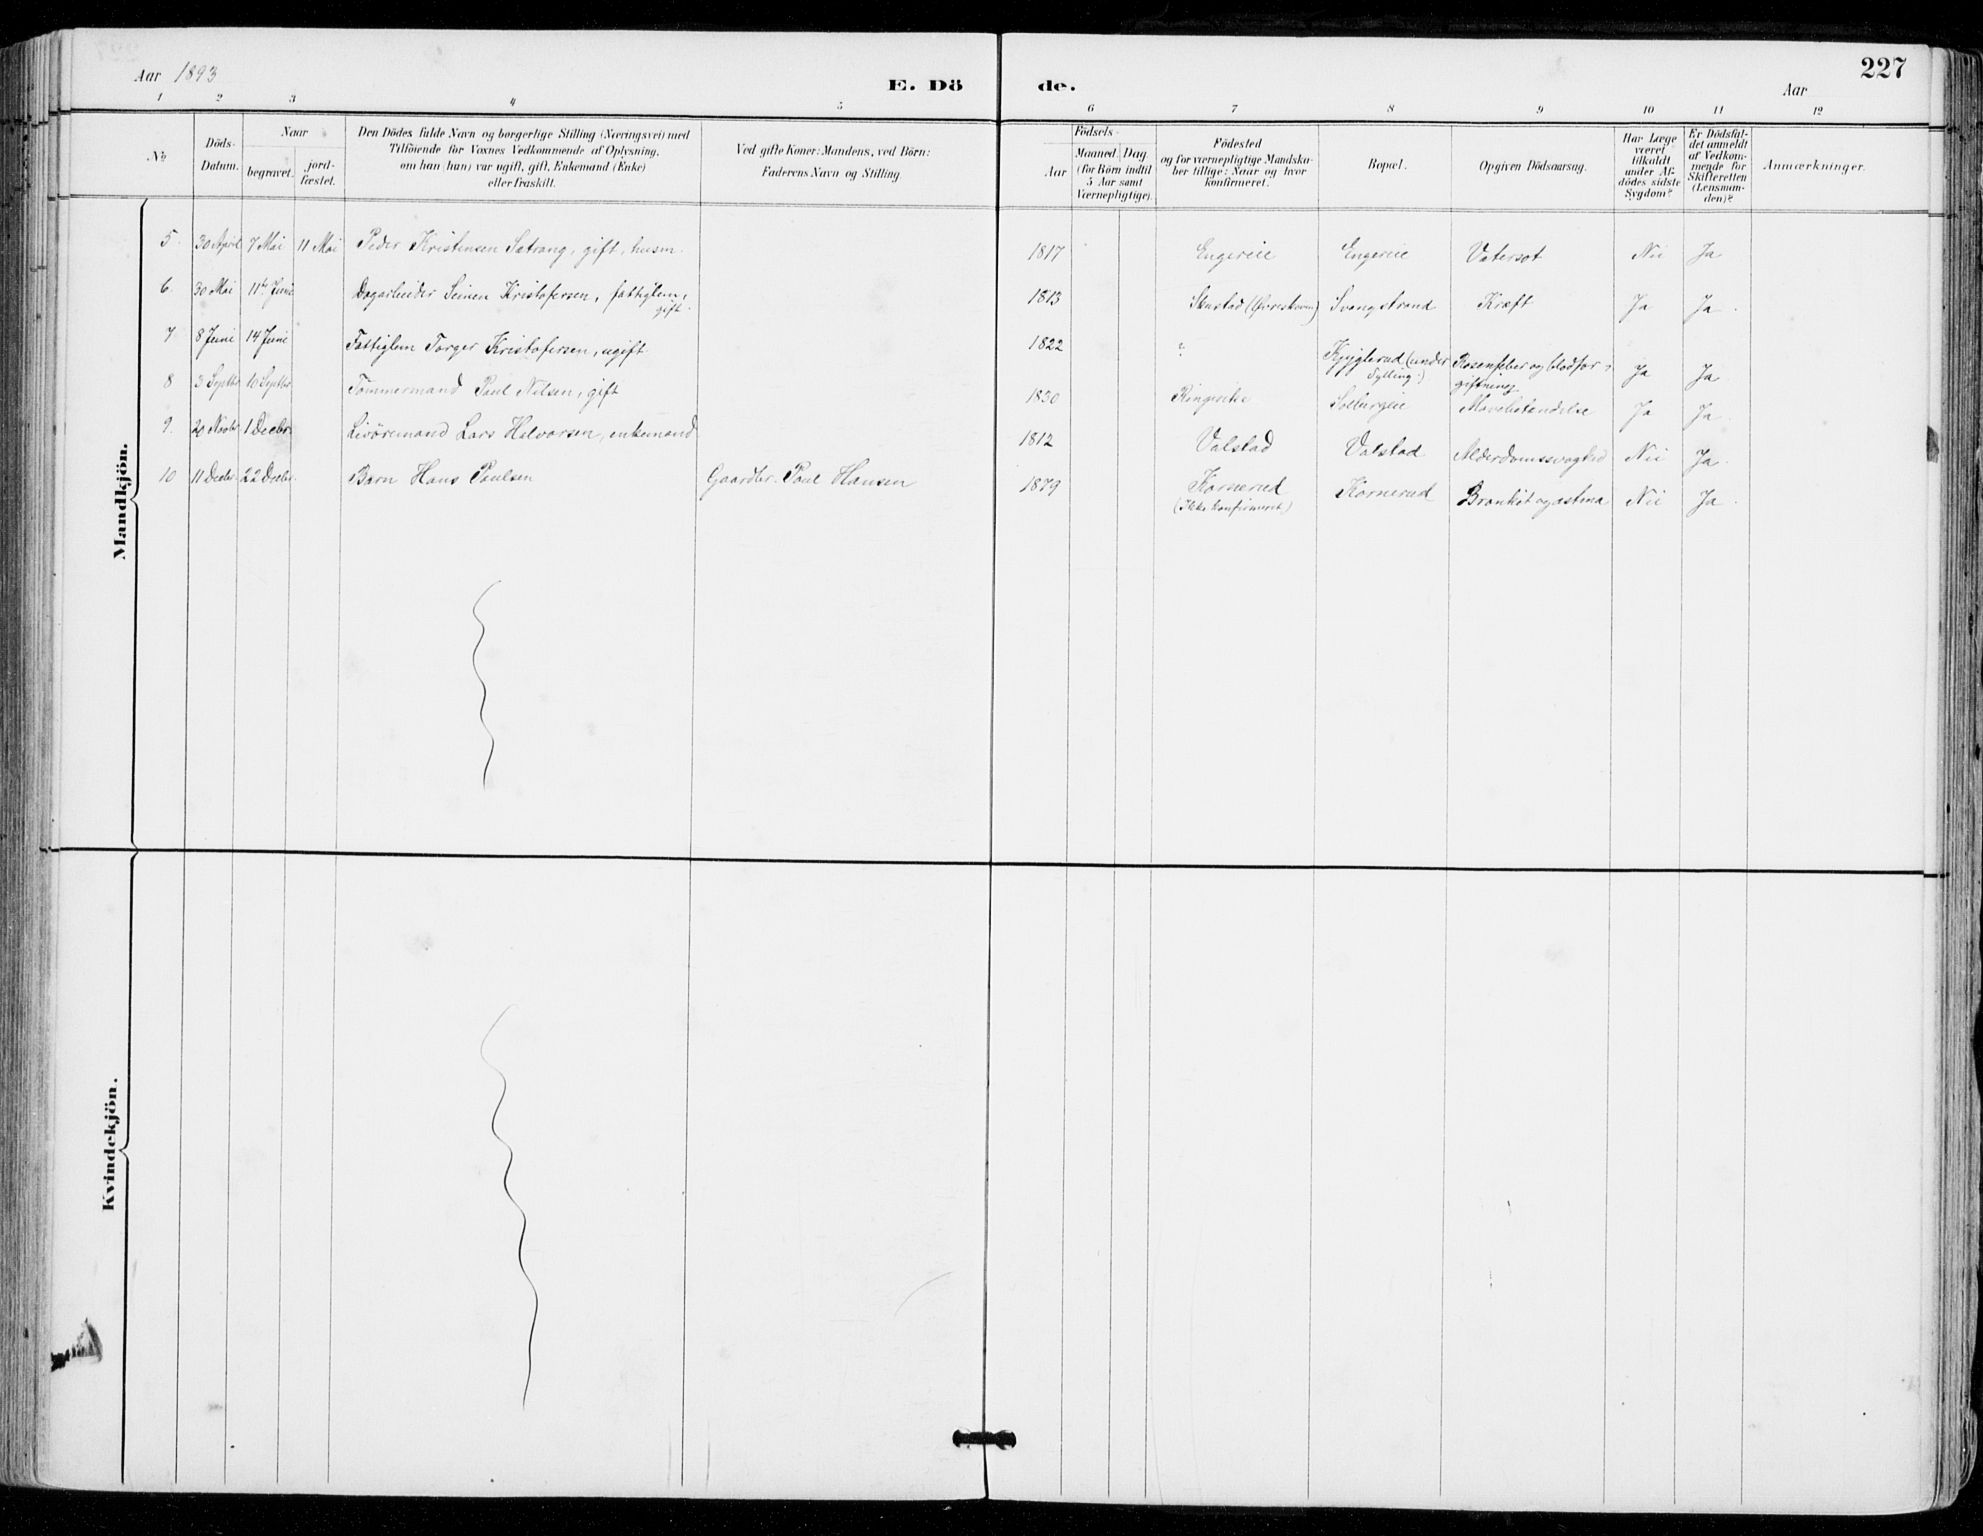 Aar 1893
E. Dö
de.
Aar
227
1 2 3 4 5 6 7 8 9 10 11 12
No
Döds-
Datum.
Naar
begravet.
jord-
fæstet.
Den Dödes fulde Navn og borgerlige Stilling (Næringsvei) med
Tilföiende for Voxnes Vedkommende af Oplysning,
om han (hun) var ugift, gift, Enkemand (Enke)
eller fraskilt.
Ved gifte Koner: Mandens, ved Börn:
Faderens Navn og Stilling
Födsels-
Aar
Maaned. Dag.
(for Börn indtil
5 Aar samt
Værnepligtige).
Födested
og for værnepligtige Mandska-
ber tillige: Naar og hvor
konfirmeret.
Bopæl.
Opgiven Dödsaarsag.
Har Læge
været
tilkaldt
under Af-
dödes sidste
Sygdom?
Er Dödsfal-
det anmeldt
af Vedkom-
mende for
Skifteretten
(Lensman-
den)?
Anmærkninger.
Mandkjön.
5. 30 April 7 Mai 11 Mai Peder Kristensen Satrang, gift, husm. 1817 Engereie Engereie Vatersot Nei Ja
6. 30 Mai 11te Juni Dagarbeider Kristofersen, fattiglem, 1813 (Øvreskoven) Svangstrand Kræft Ja Ja.
gift.
7. 8 Juni 14 Juni Fattiglem Torger Kristofersen, ugift 1822 ? (under Rosenfeber og blodfor- Ja Ja.
Sylling.) giftning
8 3 Septbr 10 Septbr Tømmermand Paul Nilsen, gift 1830 Ringerike Solbergeie Mavebetændelse Ja Ja.
9. 20 Novbr 1 Decbr. Livøremand Lars Helvorsen, enkemand 1812 Valstad Valstad Alderdomssvaghed Nei Ja.
10 11 Decbr. 22 Decbr. Barn Hans Paulsen Gaardbr. Paul Hansen 1879 Kornerud Kornerud Bronkit og astma Nei Ja.
(Ikke konfirmeret)
Kvindekjön.